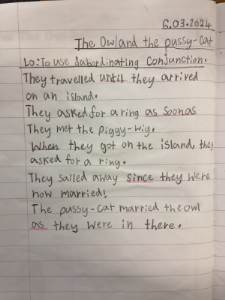 6.03.2024
The Owl and the pussy-cat
Lo: To use subordinating conjunction.
They travelled until they arrived
on an island.
They asked for a ring as soon as
They met the piggy-wig.
When they got on the island, they
asked for a ring.
They sailed away since they were
now married.
The pussy-cat married the owl
as they were in there.